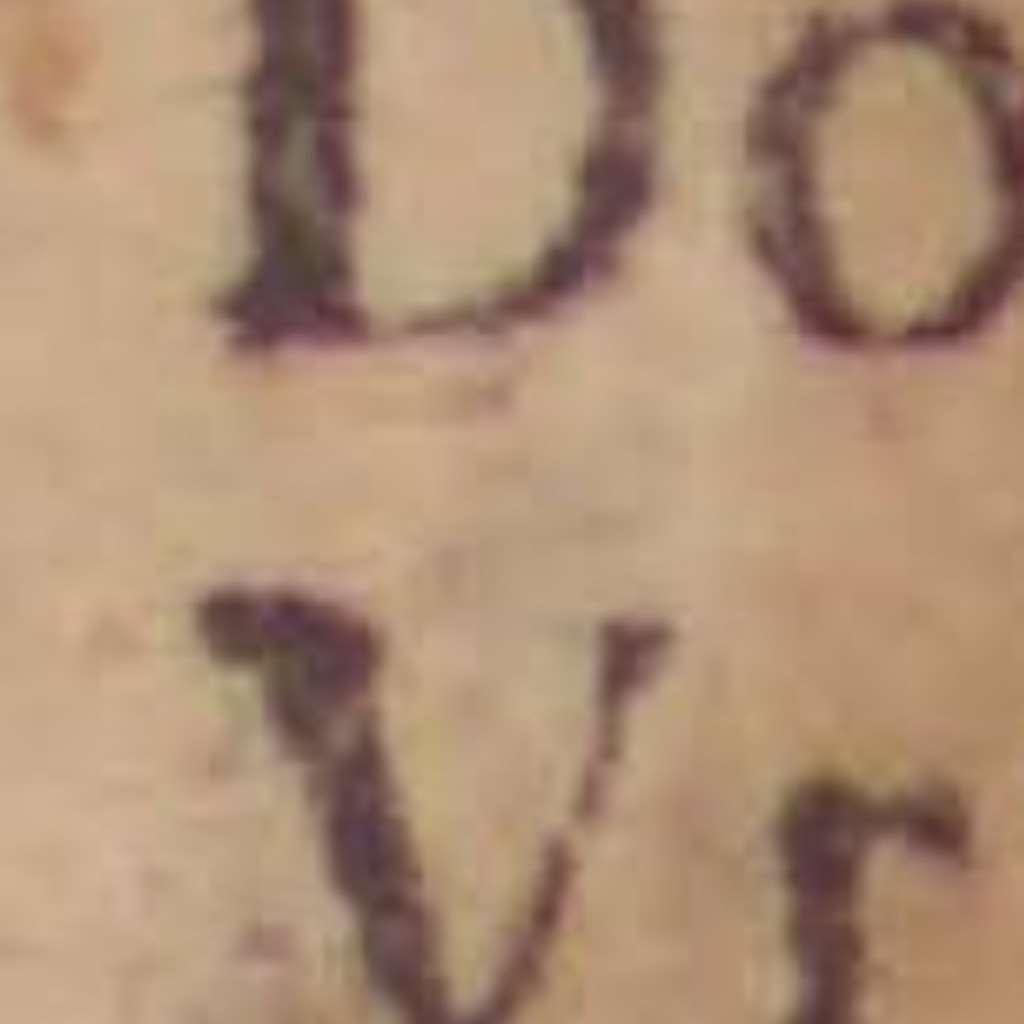 Do
Vr